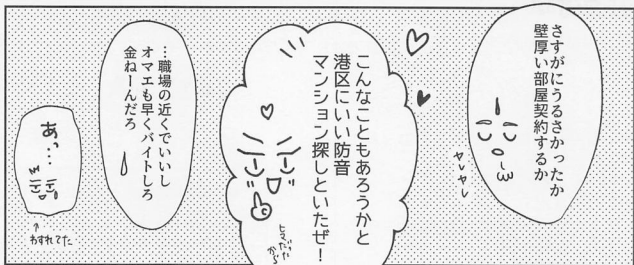 さすがにうるさかったか
壁厚い部屋契約するか
ヤレヤレ
こんなこともあろうかと
港区にいい防音
マンション探しといたぜ！
ヒマだった
から
…職場の近くでいいし
オマエも早くバイトしろ
金ねーんだろ
あっ…
↑
わすれてた